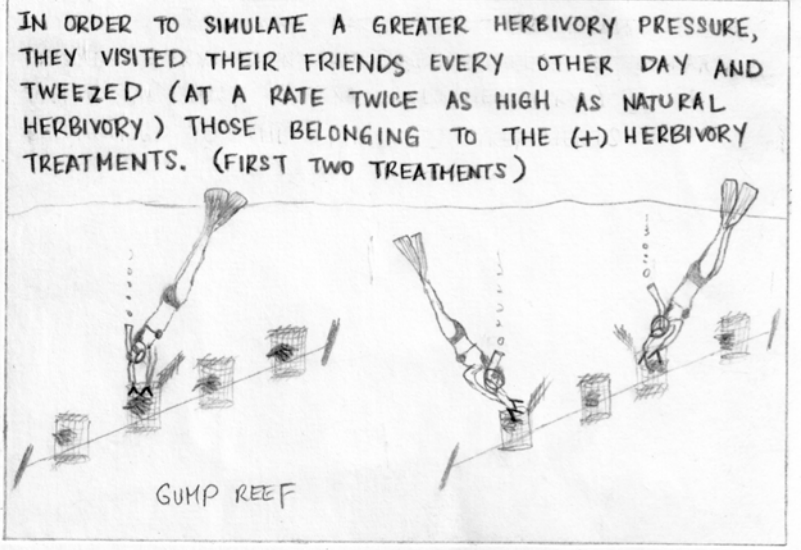 IN ORDER TO SIMULATE A GREATER HERBIVORY PRESSURE,
THEY VISITED THEIR FRIENDS EVERY OTHER DAY AND
TWEEZED (AT A RATE TWICE AS HIGH AS NATURAL
HERBIVORY) THOSE BELONGING TO THE (+) HERBIVORY
TREATMENTS. (FIRST TWO TREATMENTS)
GUMP REEF